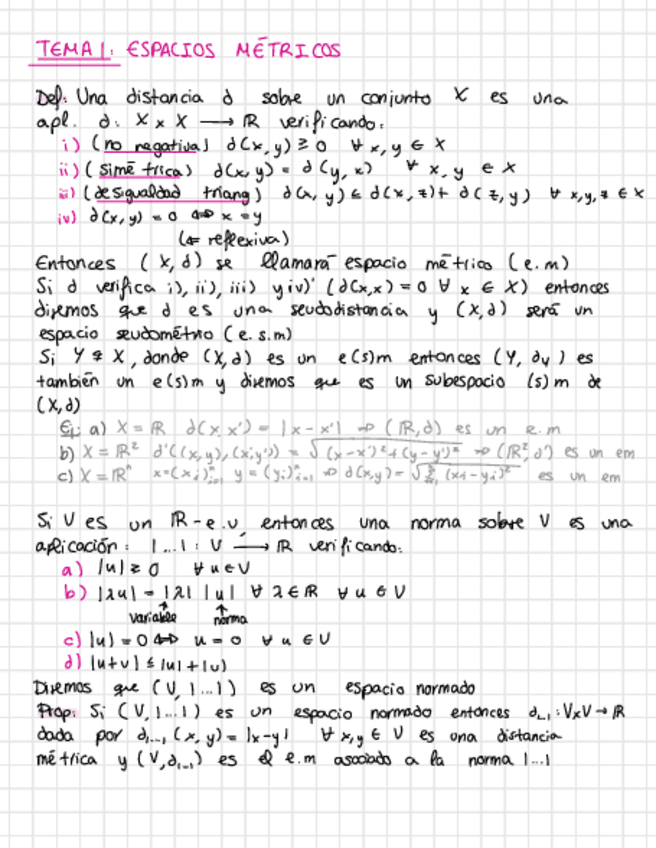 TEMA 1: ESPACIOS MÉTRICOS
Def: Una distancia d sobre un conjunto X es una
apl. d: X x X → ℝ verificando:
i) (no negativa) d(x,y) ≥ 0 ∀ x,y ∈ X
ii) (simétrica) d(x,y) = d(y,x) ∀ x,y ∈ X
iii) (desigualdad triang) d(x,y) ≤ d(x,z) + d(z,y) ∀ x,y,z ∈ X
iv) d(x,y) = 0 ⇔ x = y
(⇐ reflexiva)
Entonces (X,d) se llamará espacio métrico (e.m)
Si d verifica i), ii), iii) y iv)' (d(x,x) = 0 ∀ x ∈ X) entonces
diremos que d es una seudodistancia y (X,d) será un
espacio seudométrico (e.s.m)
Si Y ⊊ X, donde (X,d) es un e(s)m entonces (Y, dY) es
también un e(s)m y diremos que es un subespacio (s)m de
(X,d)
Ej: a) X = ℝ d(x,x') = |x - x'| ⇒ (ℝ,d) es un e.m
b) X = ℝ² d'((x,y),(x',y')) = √((x-x')²+(y-y')²) ⇒ (ℝ²,d') es un em
c) X = ℝⁿ x=(xᵢ)ⁿᵢ₌₁ y=(yᵢ)ⁿᵢ₌₁ ⇒ d(x,y) = √(Σⁿᵢ₌₁ (xᵢ-yᵢ)²) es un em
Si V es un ℝ-e.v. entonces una norma sobre V es una
aplicación: |...| : V → ℝ verificando:
a) |u| ≥ 0 ∀ u ∈ V
b) |λu| = |λ| |u| ∀ λ ∈ ℝ ∀ u ∈ V
variable norma
c) |u| = 0 ⇔ u = 0 ∀ u ∈ V
d) |u+v| ≤ |u| + |v|
Diremos que (V, |...|) es un espacio normado
Prop: Si (V, |...|) es un espacio normado entonces d|...| : VxV → ℝ
dada por d|...| (x,y) = |x-y| ∀ x,y ∈ V es una distancia
métrica y (V,d|...|) es el e.m asociado a la norma |...|